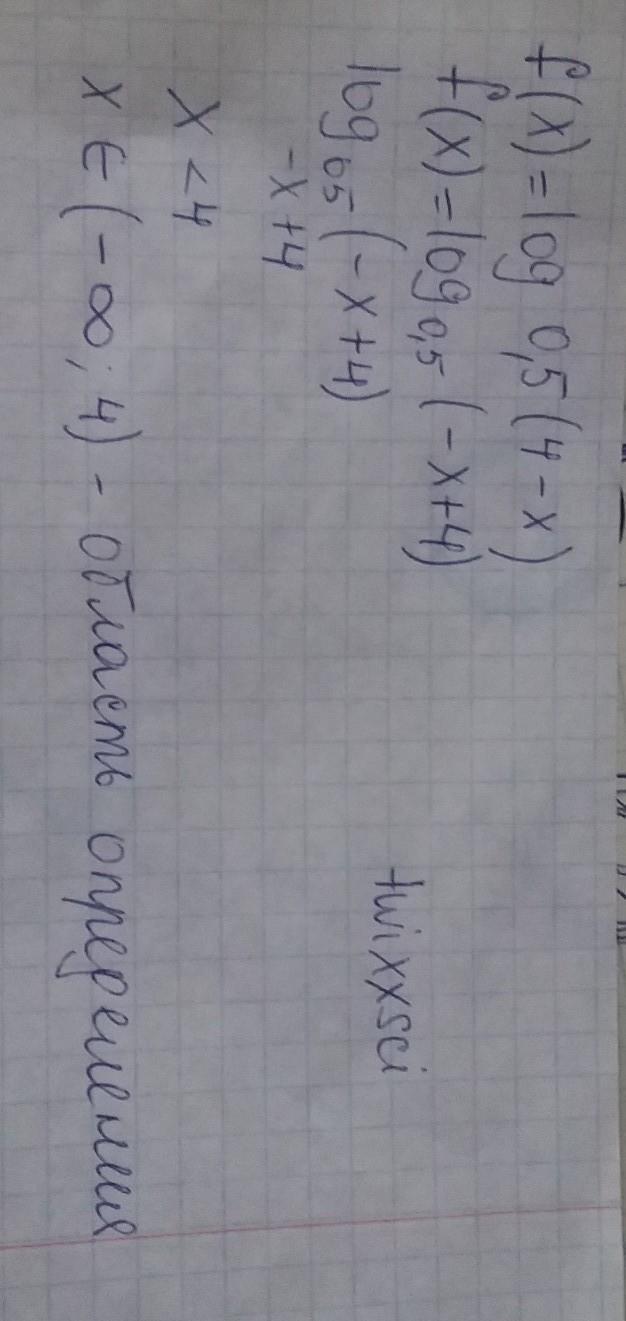 f(x)=log 0,5(4-x)
f(x)=log 0,5 (-x+4)
log 0,5 (-x+4)
-x+4
x<4
x ∈ (-∞; 4) - область определения
twixxsci